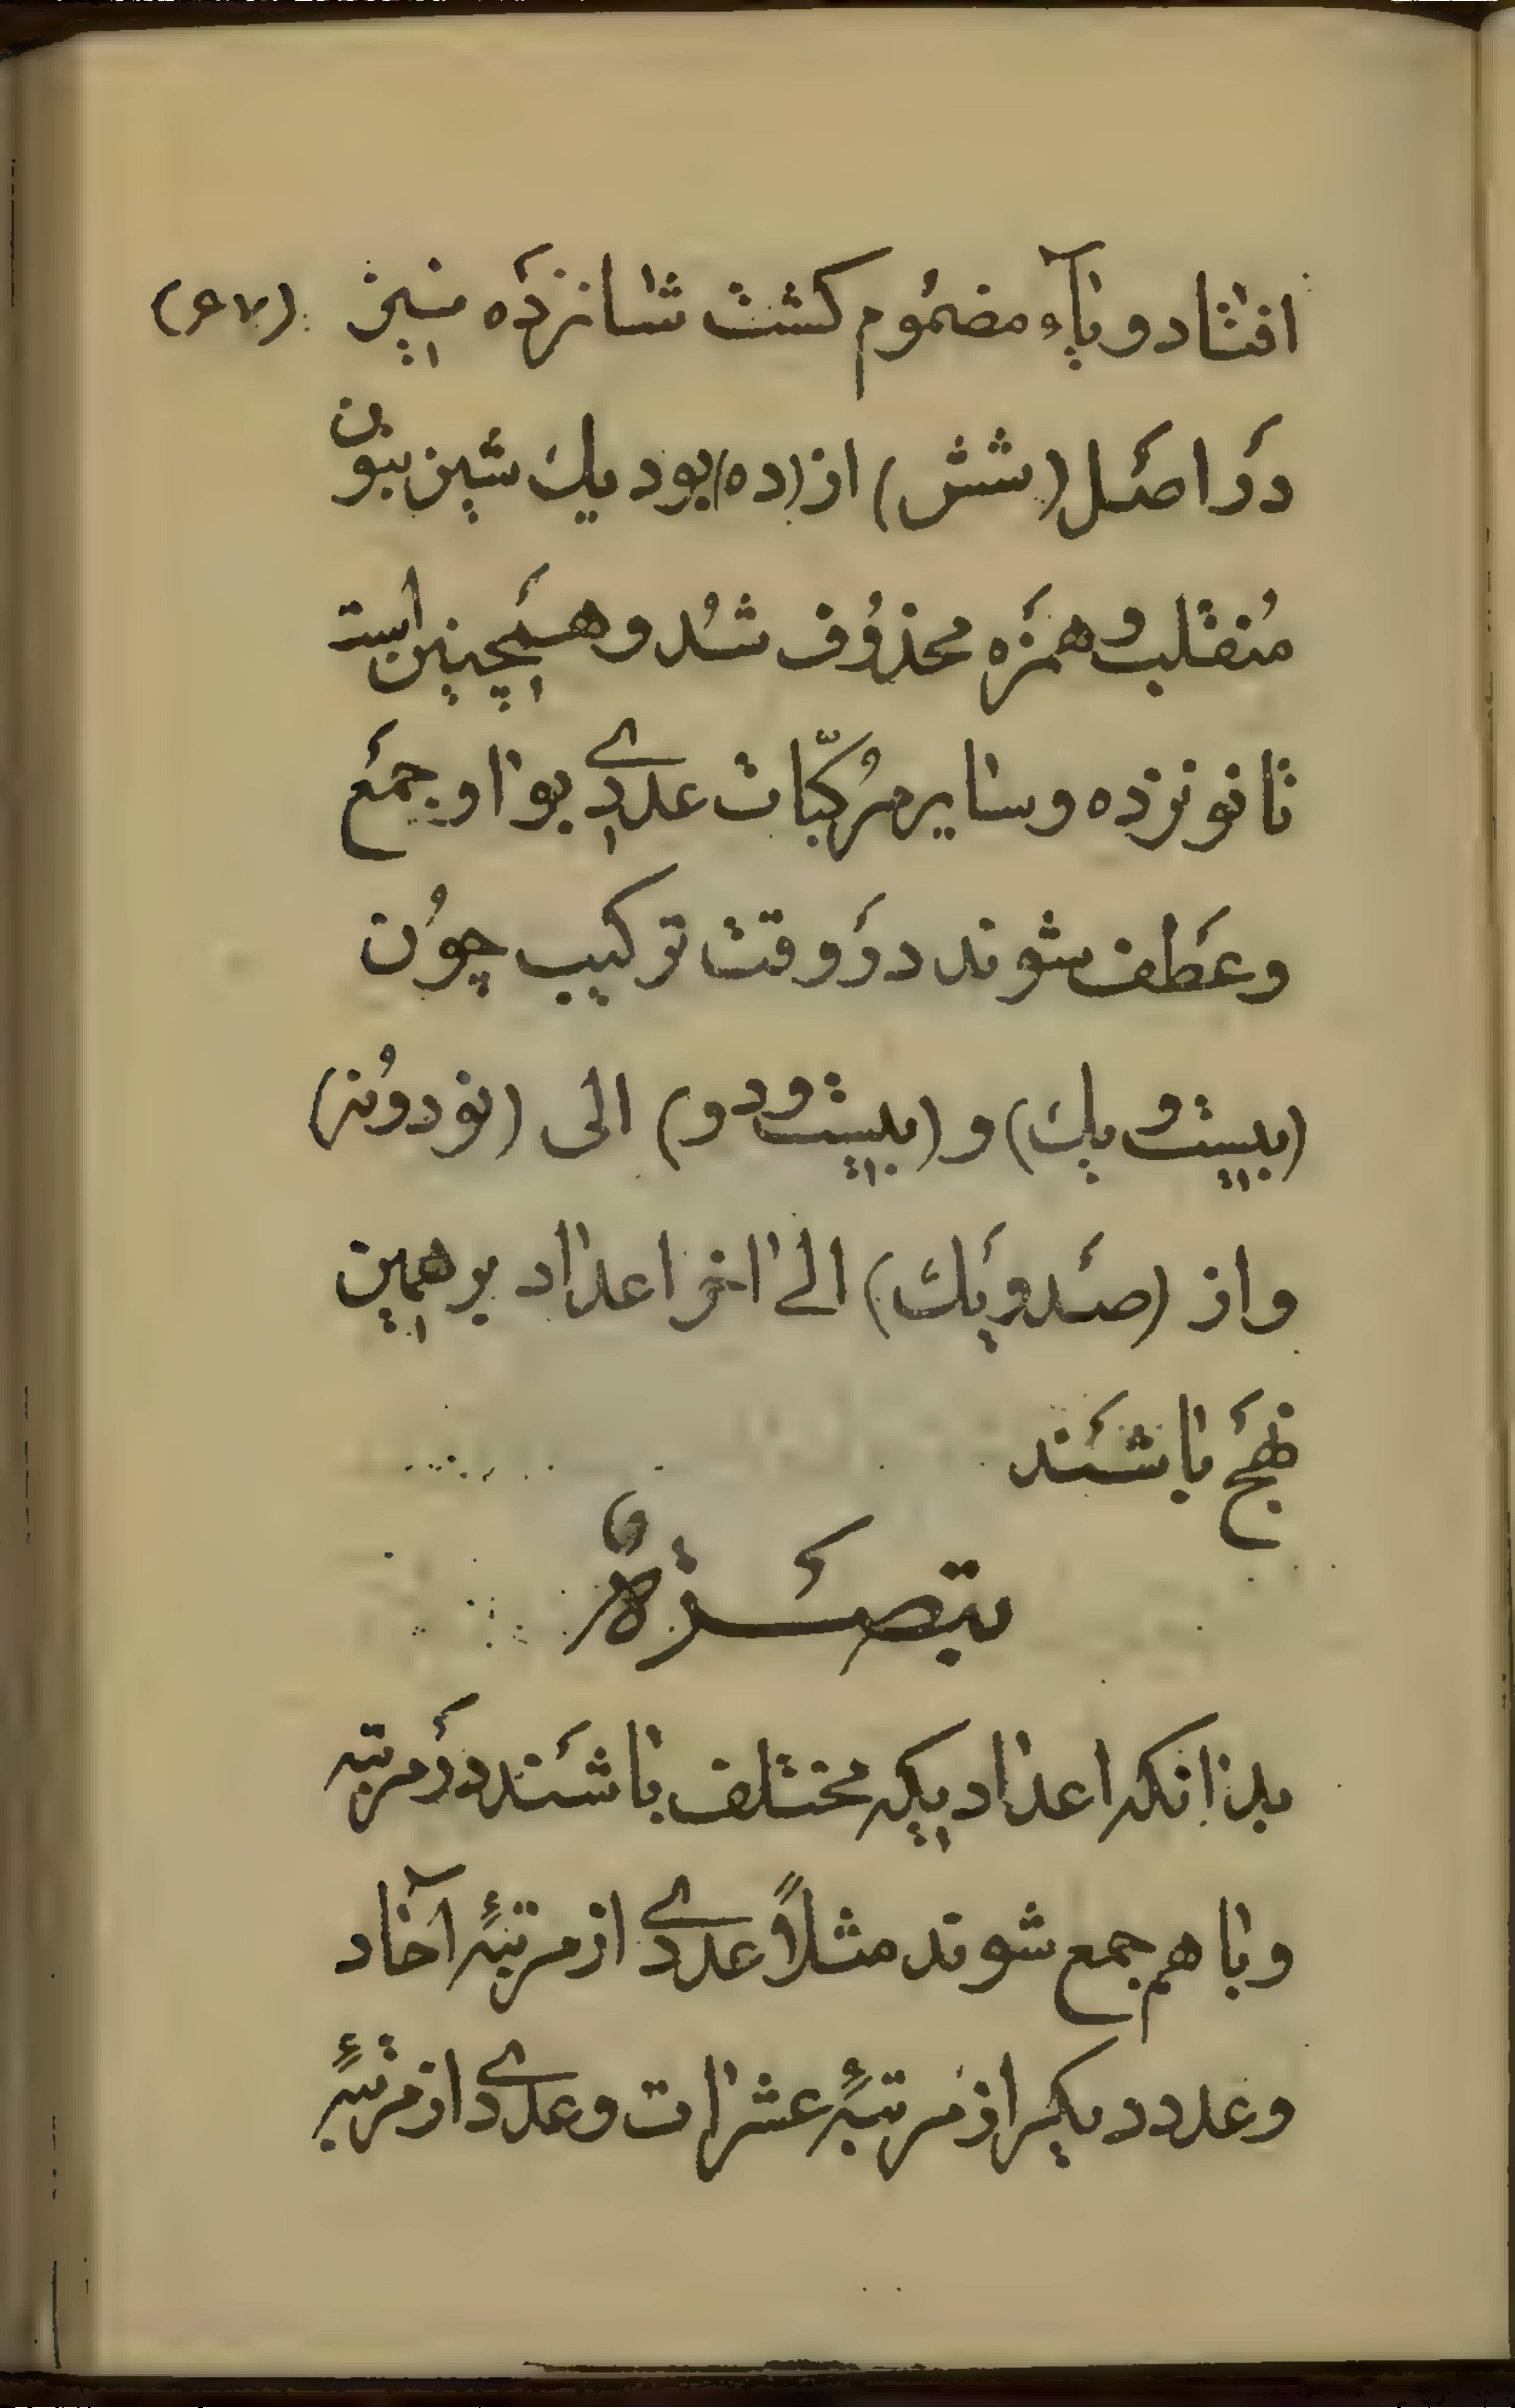 افتاد و باء مضمُوم کشت شانزدَه نیز (۶۷)
دَر اصَل (شش) از (ده) بود یك شین بنون
مُنقلب و همَزه محذوُف شُد و همَچنین است
تا نوزده و سایر مرُکبّات عددے بواو جمَع
وعَطف شوند دَر وقت ترکیب چوُن
(بیست و یك) و (بیست و دو) الی (نود و نُه)
و از (صَد و یَك) الے اخر اعداد بر همین
نهَج باشَند
تبصَرةٌ
بدانکه اعدادیکه مختلف باشَند دَر مرتبه
و با هم جمع شوند مثلاً عددے از مرتبهٔ آحاد
و عدد دیکر از مرتبهٔ عشرات و عددے از مرتبهٔ